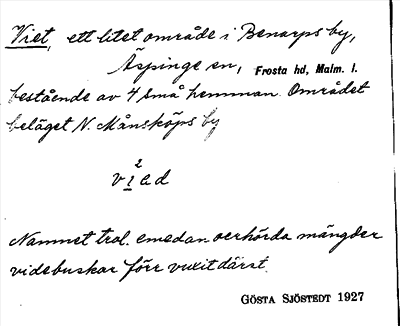 Viet, ett litet område i Benarps by,
Äspinge sn, Frosta hd, Malm. l.
bestående av 4 små hemman. Området
beläget N. Månsköps by
2
Namnet trol. emedan oerhörda mängder
videbuskar förr vuxit därst.
GÖSTA SJÖSTEDT 1927